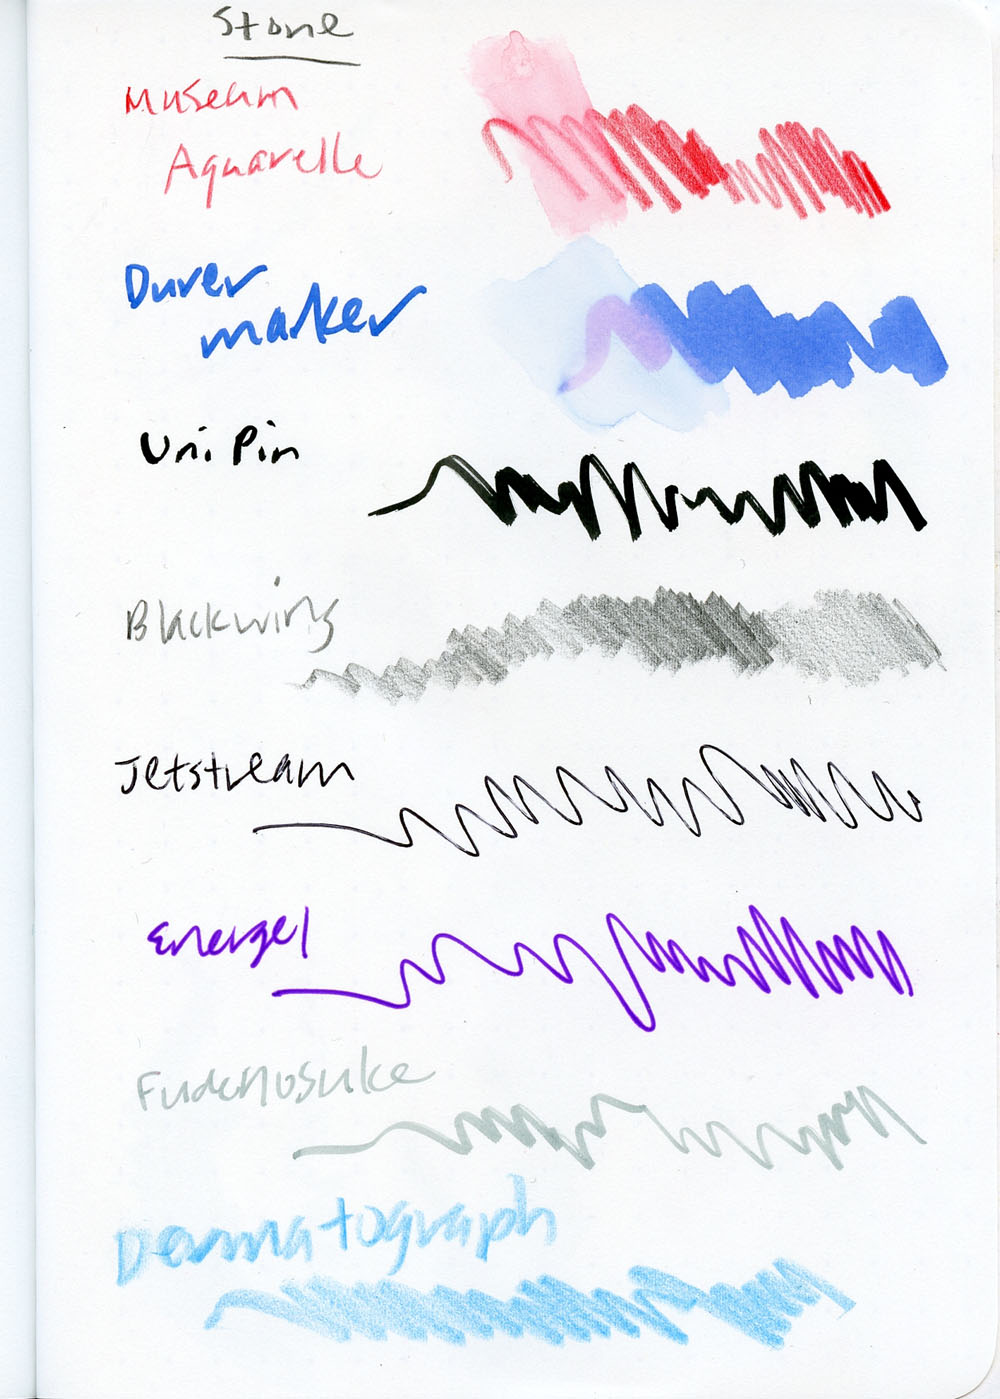 Stone
Museum
Aquarelle
Durer
marker
Uni Pin
Blackwing
Jetstream
Energel
Fudenosuke
Dermatograph